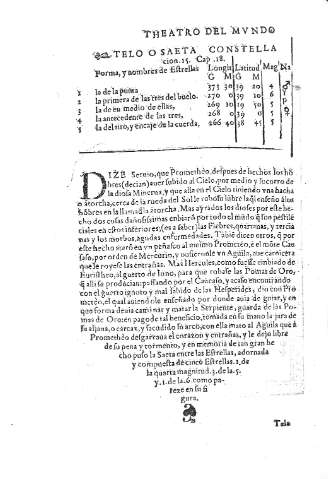 THEATRO DEL MVNDO
TELO O SAETA CONSTELLA
cion.15. Cap .18.
Forma, y nombres de Estrellas
Longitu Latitud Mag Na
G M G M
1 la de la punta 39 20 4
2 la primera de las tres del buelo. 270 0 39 10 6
3 la de en medio de ellas, 269 10 39 50 5
4 la antecedente de las tres, 268 0 39 0
5 la del tiro, y encaje de la cuerda, 266 40 38 45 5
DIZE Seruio, que Prometheo, despues de hechos los hõ
bres (dezian) auer subido al Cielo, por medio y socorro de
la diosa Minerua, y que alla en el Cielo teniendo vna hacha
o antorcha, cerca de la rueda del Sol le robo su lũbre la
hõbres en la llama la antorcha. Mas ayrados los dioses por este he-
cho dos cosas dañosissimas enbiarõ por todo el mũdo
ciales en estos inferiores, (es a saber) las Fiebres, quartanas, y tercia
nas y los motbos, agudas enfermedades. Tãbiẽ dizen otros, q̃ por
este hecho ataron en vn peñasco al mismo Prometeo, en el mõte Cau
caso, por orden de Mercurio, y pusieronle vn Aguila, que carnicera
que le royesse las entrañas. Mas Hercules, como fuesse embiado de
Euristheo, al guerto de Iuno, para que robase las Pomas de Oro,
q̃ alli se produzian: passando por el Caucaso, y acaso encontrando
con el guerto ignoto y mal sabido de las Hesperides, dio con Pro
meteo, el qual auiendole enseñado por donde auia de guiar, y en
que forma deuia caminar y matar la Serpiente, guarda de las Po
mas de Oro: en pago de tal beneficio, tomada en su mano la jara de
su aljaua, o carcax, y sacudido su arco, con ella mato al Aguila que à
Prometheo desgarraua el corazon y entrañas, y le dejo libre
de su pena y tormento, y en memoria de tan gran he
cho puso la Saeta entre las Estrellas, adornada
y compuesta de cinco Estrellas. 1. de
la quarta magnitud. 3. de la 5.
y .1. de la 6. como pa-
reze en su fi
gura.
Telo